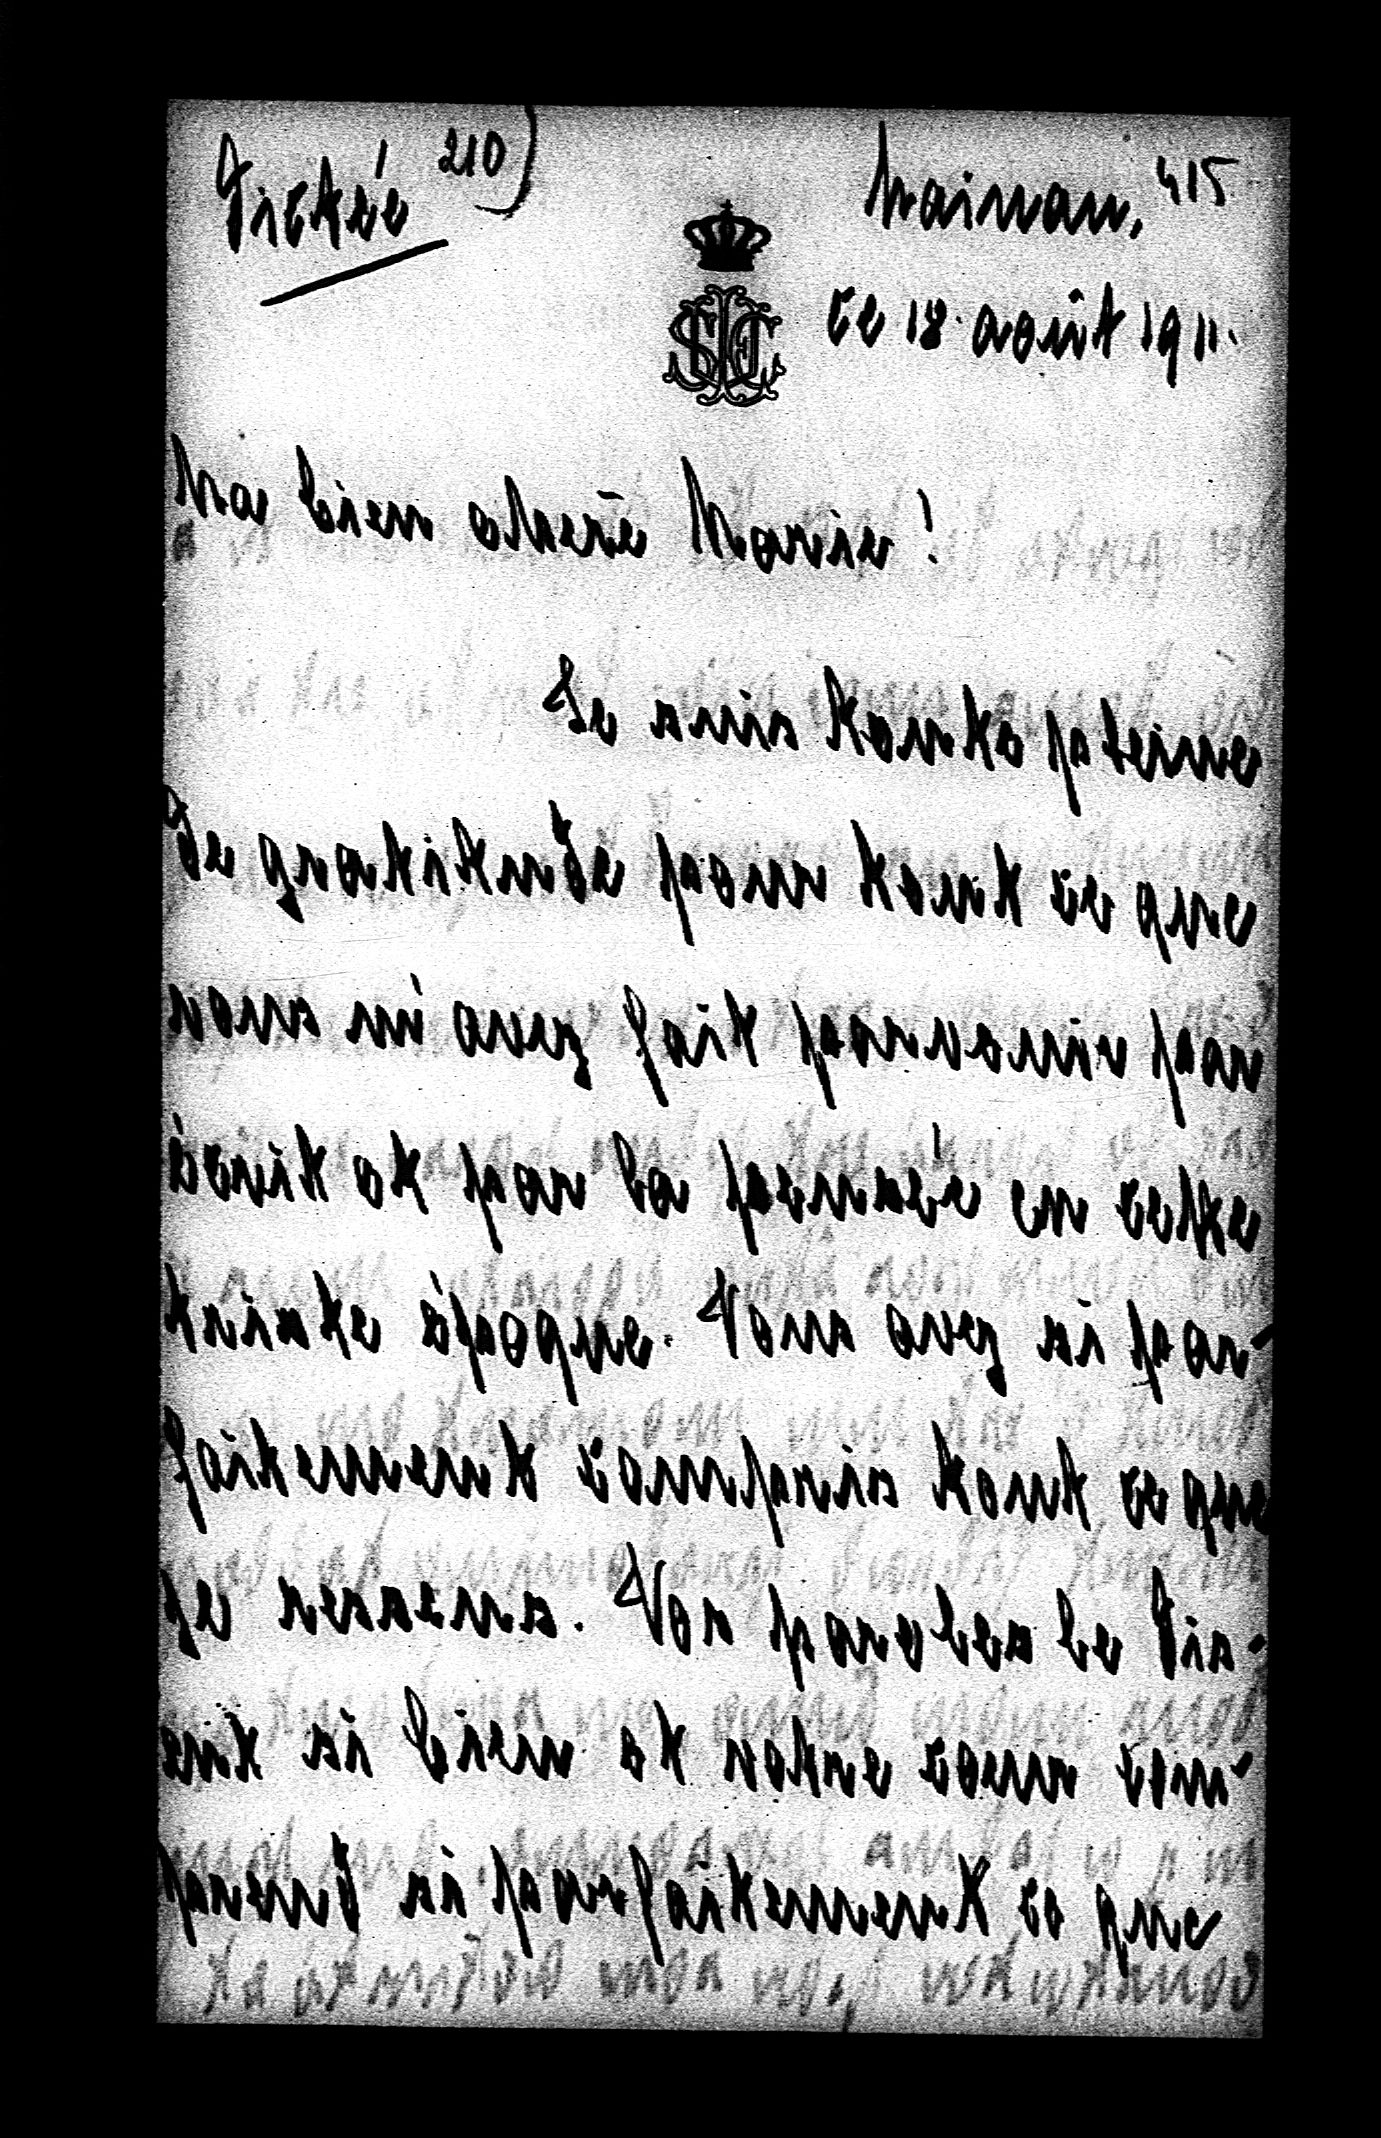 Dictée 210) Mainau, 415
ce 18. août 1911.
Ma bien chère Marie!
Je suis toute pleine
de gratitude pour tout ce que
vous m'avez fait parvenir par
écrit et par la pensée en cette
triste époque. Vous avez si par-
faitement compris tout ce que
je ressens. Vos paroles le di-
sent si bien et votre cœur com-
prend si parfaitement ce que